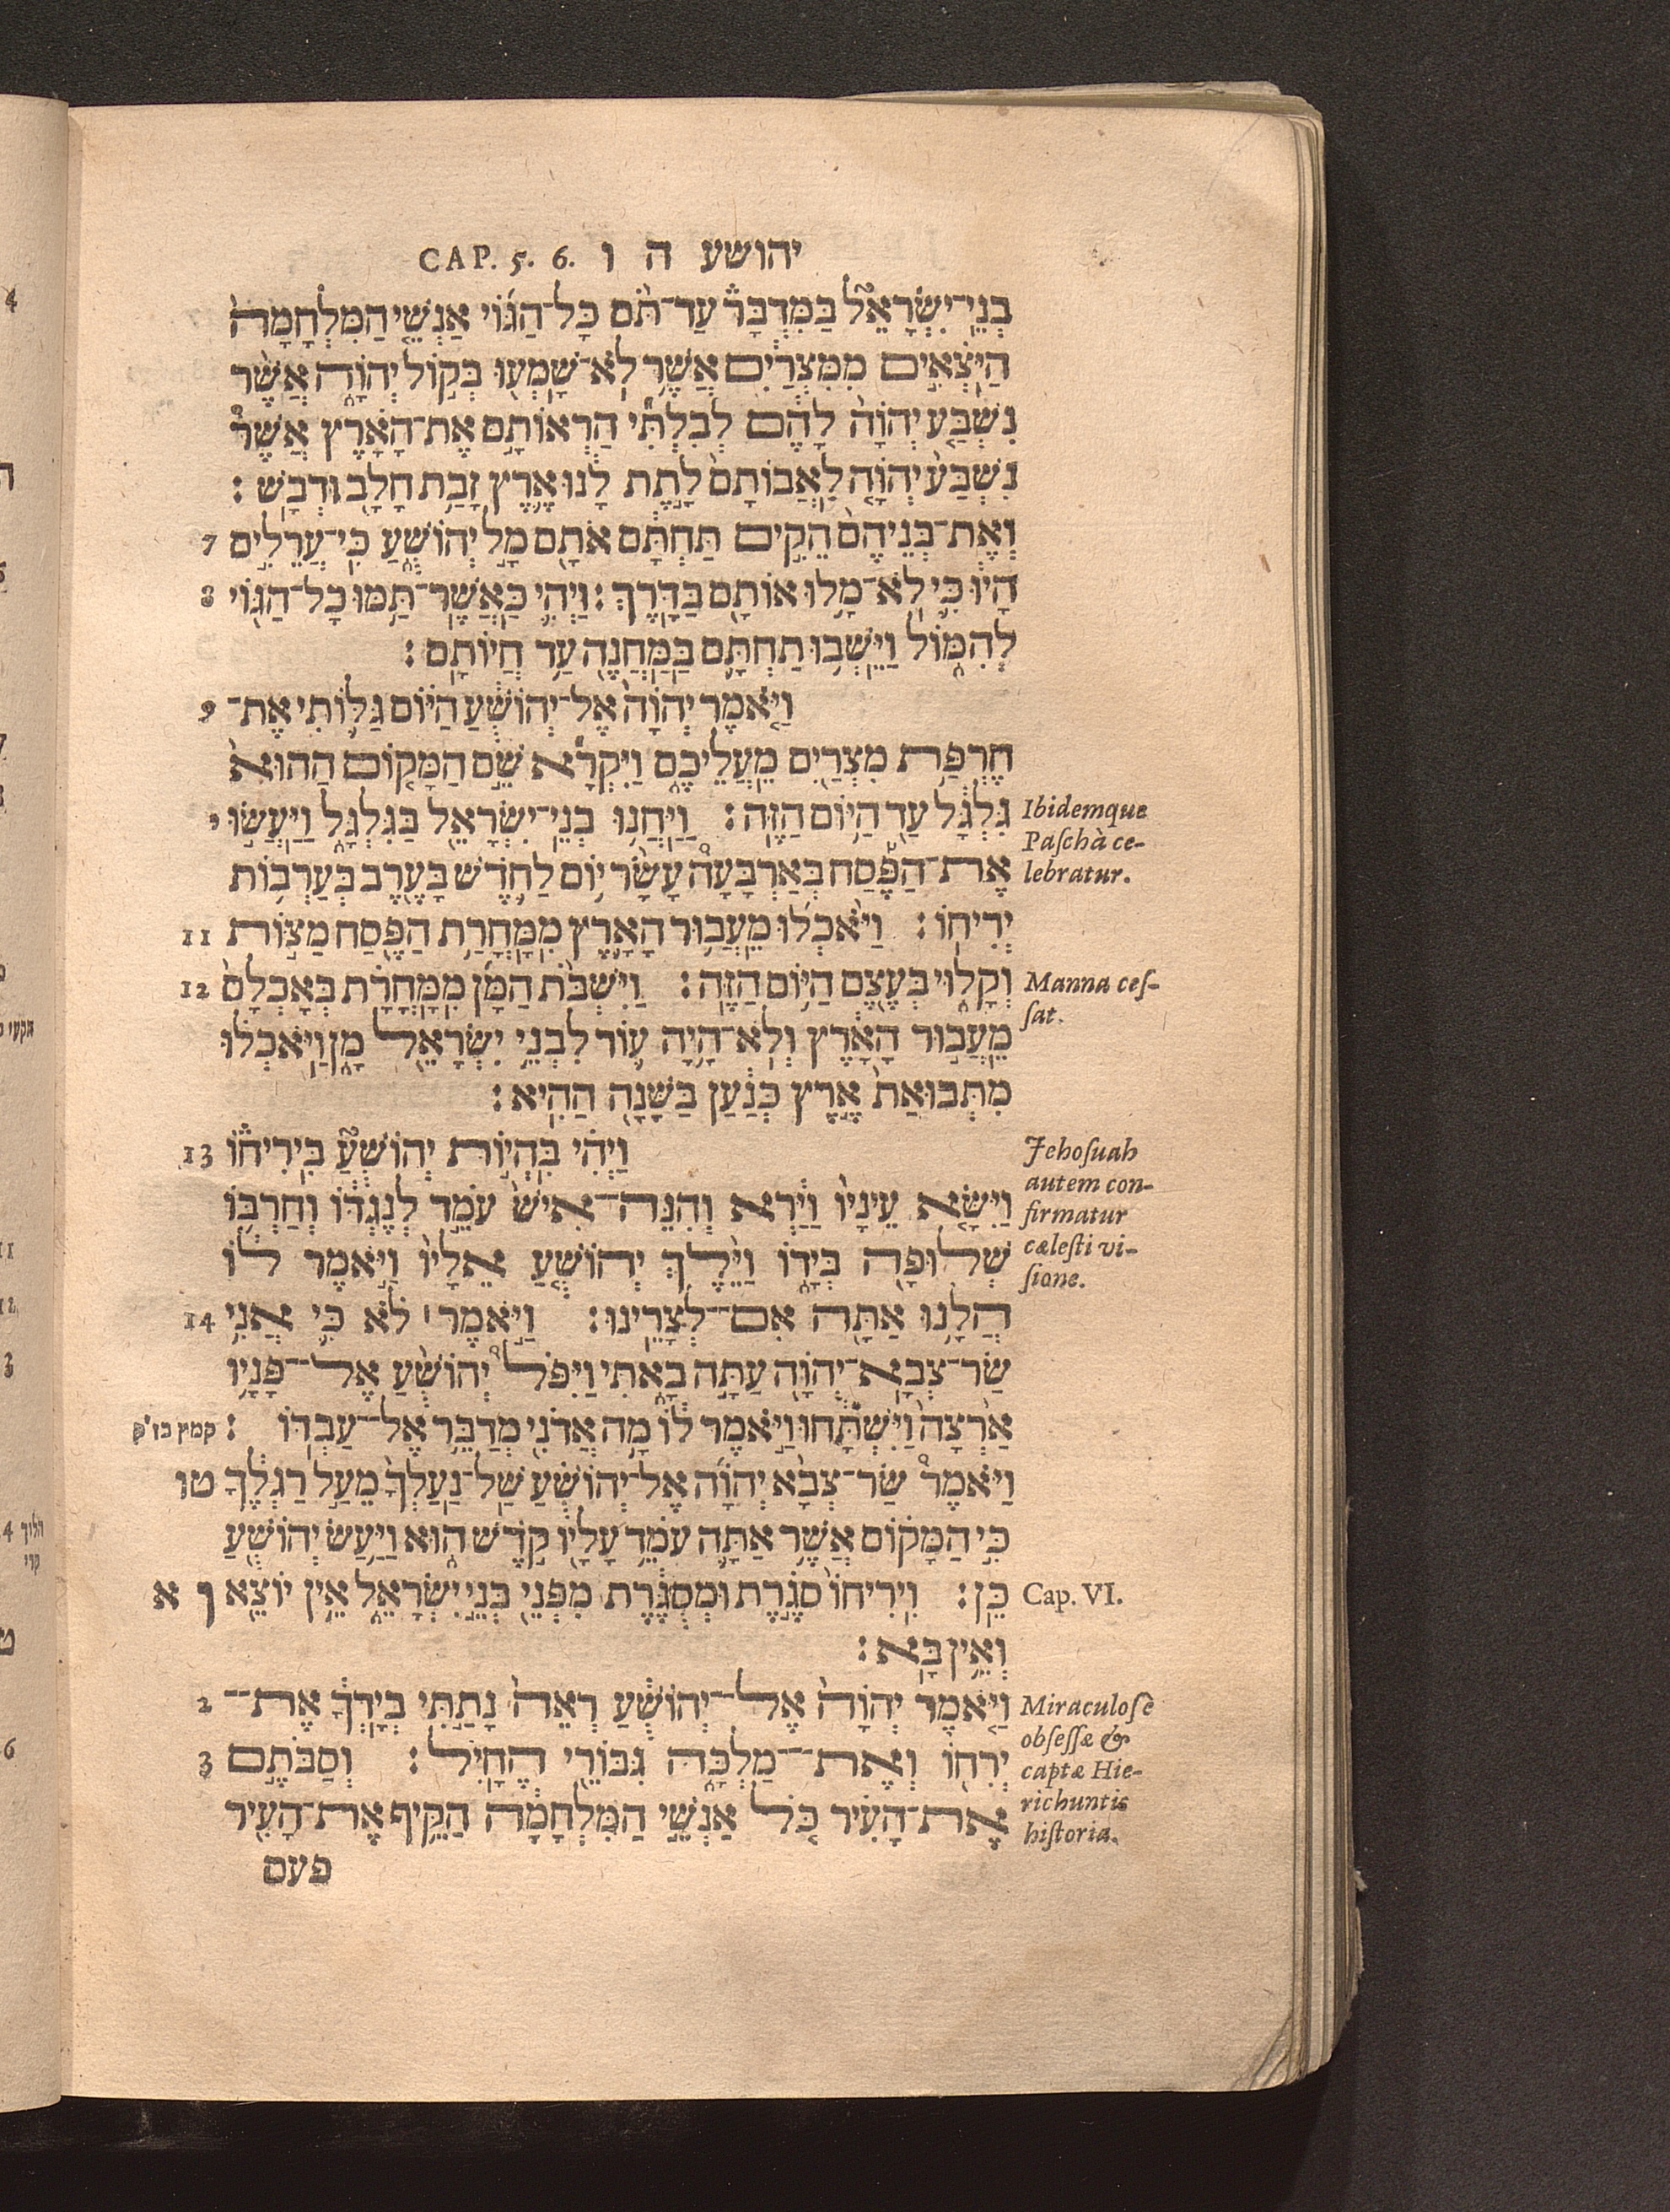 יהושע ה ו CAP. 5. 6.
בְּנֵֽי־יִשְׂרָאֵל֮ בַּמִּדְבָּר֒ עַד־תֹּ֨ם כָּל־הַגּ֜וֹי אַנְשֵׁ֤י הַמִּלְחָמָה֙
הַיֹּצְאִ֣ים מִמִּצְרַ֔יִם אֲשֶׁ֥ר לֹֽא־שָׁמְע֖וּ בְּק֣וֹל יְהוָ֑ה אֲשֶׁ֨ר
נִשְׁבַּ֤ע יְהוָה֙ לָהֶ֔ם לְבִלְתִּ֞י הַרְאוֹתָ֣ם אֶת־הָאָ֗רֶץ אֲשֶׁר֩
נִשְׁבַּ֨ע יְהוָ֤ה לַֽאֲבוֹתָם֙ לָ֣תֶת לָ֔נוּ אֶ֛רֶץ זָבַ֥ת חָלָ֖ב וּדְבָֽשׁ׃
7 וְאֶת־בְּנֵיהֶם֙ הֵקִ֣ים תַּחְתָּ֔ם אֹתָ֖ם מָ֣ל יְהוֹשֻׁ֑עַ כִּֽי־עֲרֵלִ֣ים
8 הָי֔וּ כִּ֛י לֹֽא־מָ֥לוּ אוֹתָ֖ם בַּדָּֽרֶךְ׃ וַיְהִ֛י כַּֽאֲשֶׁר־תַּ֥מּוּ כָל־הַגּ֖וֹי
לְהִמּ֑וֹל וַיֵּֽשְׁב֥וּ תַחְתָּ֛ם בַּֽמַּֽחֲנֶ֖ה עַ֥ד חֲיוֹתָֽם׃
9 וַיֹּ֤אמֶר יְהוָה֙ אֶל־יְהוֹשֻׁ֔עַ הַיּ֗וֹם גַּלּ֛וֹתִי אֶת־
חֶרְפַּ֥ת מִצְרַ֖יִם מֵֽעֲלֵיכֶ֑ם וַיִּקְרָ֞א שֵׁ֣ם הַמָּק֤וֹם הַהוּא֙
גִּלְגָּ֔ל עַ֖ד הַיּ֥וֹם הַזֶּֽה׃ וַיַּֽחֲנ֥וּ בְנֵֽי־יִשְׂרָאֵ֖ל בַּגִּלְגָּ֑ל וַיַּֽעֲשׂ֣וּ י
Ibidemque
Paſchà ce-
lebratur.
אֶת־הַפֶּ֡סַח בְּאַרְבָּעָה֩ עָשָׂ֨ר י֥וֹם לַחֹ֛דֶשׁ בָּעֶ֖רֶב בְּעַֽרְב֥וֹת
11 יְרִיחֽוֹ׃ וַיֹּ֨אכְל֜וּ מֵֽעֲב֥וּר הָאָ֛רֶץ מִֽמָּחֳרַ֥ת הַפֶּ֖סַח מַצּ֣וֹת
12 וְקָל֑וּי בְּעֶ֖צֶם הַיּ֥וֹם הַזֶּֽה׃ וַיִּשְׁבֹּ֨ת הַמָּ֜ן מִֽמָּחֳרָ֗ת בְּאָכְלָם֙
Manna ceſ-
ſat.
מֵֽעֲב֣וּר הָאָ֔רֶץ וְלֹֽא־הָ֥יָה ע֛וֹד לִבְנֵ֥י יִשְׂרָאֵ֖ל מָ֑ן וַיֹּֽאכְל֗וּ
מִתְּבוּאַת֙ אֶ֣רֶץ כְּנַ֔עַן בַּשָּׁנָ֖ה הַהִֽיא׃
13 וַיְהִ֗י בִּֽהְי֣וֹת יְהוֹשֻׁעַ֮ בִּֽירִיחוֹ֒
וַיִּשָּׂ֤א עֵינָיו֙ וַיַּ֔רְא וְהִנֵּה־אִישׁ֙ עֹמֵ֣ד לְנֶגְדּ֔וֹ וְחַרְבּ֥וֹ
שְׁלוּפָ֖ה בְּיָד֑וֹ וַיֵּ֨לֶךְ יְהוֹשֻׁ֤עַ אֵלָיו֙ וַיֹּ֣אמֶר ל֔וֹ
Jehoſuah
autem con-
firmatur
cæleſti vi-
ſione.
14 הֲלָ֥נוּ אַתָּ֖ה אִם־לְצָרֵֽינוּ׃ וַיֹּ֣אמֶר׀ לֹ֗א כִּ֛י אֲנִ֥י
שַׂר־צְבָֽא־יְהוָ֖ה עַתָּ֣ה בָ֑אתִי וַיִּפֹּל֩ יְהוֹשֻׁ֨עַ אֶל־פָּנָ֥יו
אַ֙רְצָה֙ וַיִּשְׁתָּ֔חוּ וַיֹּ֣אמֶר ל֔וֹ מָ֥ה אֲדֹנִ֖י מְדַבֵּ֥ר אֶל־עַבְדּֽוֹ׃
קמץ בז״ק
וַיֹּאמֶר֩ שַׂר־צְבָ֨א יְהוָ֜ה אֶל־יְהוֹשֻׁ֗עַ שַׁל־נַֽעַלְךָ֙ מֵעַ֣ל רַגְלֶ֔ךָ טו
כִּ֣י הַמָּק֗וֹם אֲשֶׁ֥ר אַתָּ֛ה עֹמֵ֥ד עָלָ֖יו קֹ֣דֶשׁ ה֑וּא וַיַּ֥עַשׂ יְהוֹשֻׁ֖עַ
כֵּֽן׃ וִֽירִיחוֹ֙ סֹגֶ֣רֶת וּמְסֻגֶּ֔רֶת מִפְּנֵ֖י בְּנֵ֣י יִשְׂרָאֵ֑ל אֵ֥ין יוֹצֵ֖א ו א
Cap. VI.
וְאֵ֥ין בָּֽא׃
2 וַיֹּ֤אמֶר יְהוָה֙ אֶל־יְהוֹשֻׁ֔עַ רְאֵה֙ נָתַ֣תִּי בְיָֽדְךָ֔ אֶת־
3 יְרִח֖וֹ וְאֶת־מַלְכָּ֑הּ גִּבּוֹרֵ֖י הֶחָֽיִל׃ וְסַבֹּתֶ֣ם
אֶת־הָעִ֗יר כֹּ֚ל אַנְשֵׁ֣י הַמִּלְחָמָ֔ה הַקֵּ֥יף אֶת־הָעִ֖יר
Miraculoſè
obſeſſæ &
captæ Hie-
richuntis
hiſtoria.
פעם